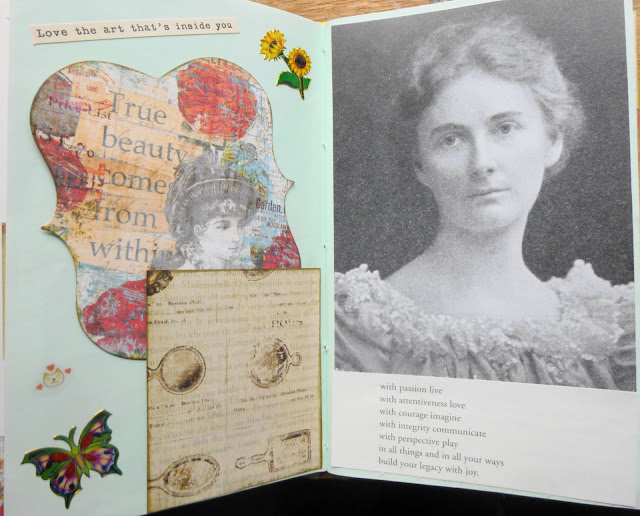 Love the art that's inside you
True
beauty
comes
from
within
Garden
with passion live
with attentiveness love
with courage imagine
with integrity communicate
with perspective play
in all things and in all your ways
build your legacy with joy.